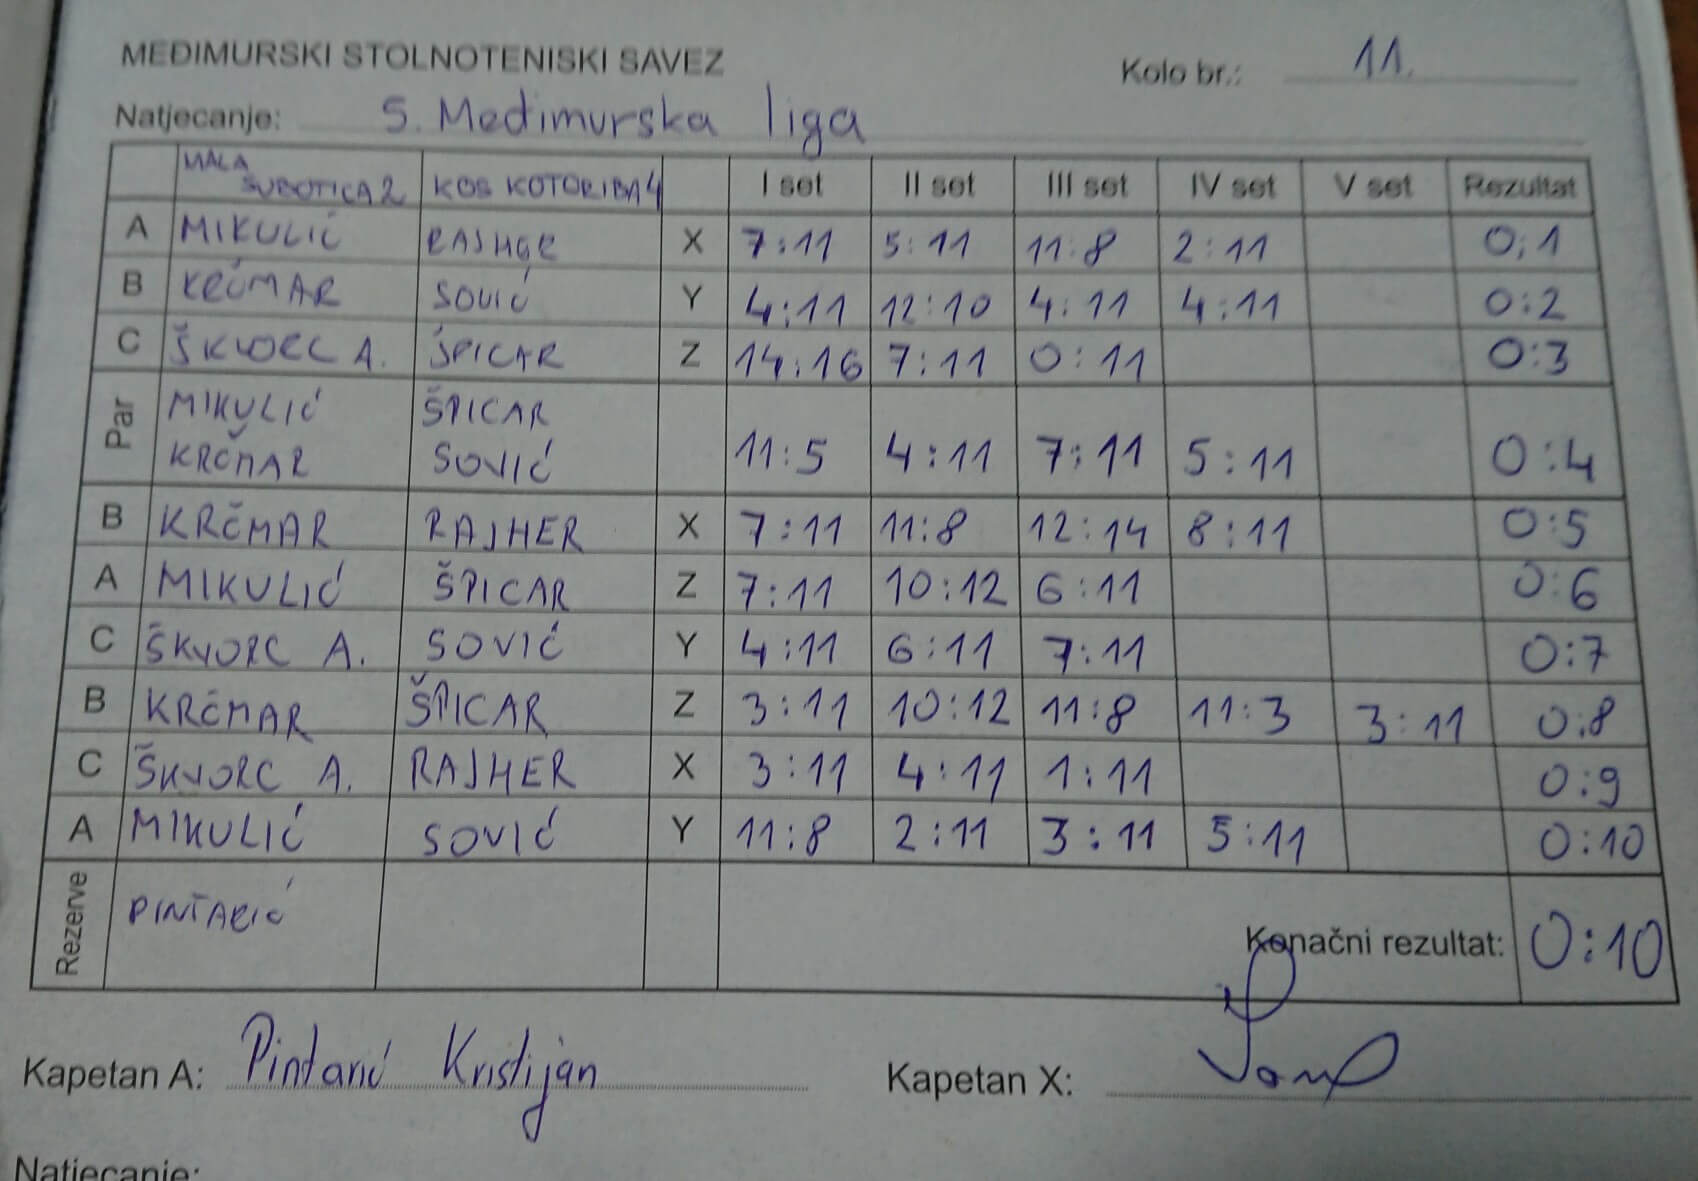 MEĐIMURSKI STOLNOTENISKI SAVEZ
Kolo br.: 11.
Natjecanje: 5. Međimurska liga
MALA SUBOTICA 2 KOS KOTORIBA 4 I set II set III set IV set V set Rezultat
A MIKULIĆ RAJHER X 7:11 5:11 11:8 2:11 0:1
B KRČMAR SOVIĆ Y 4:11 12:10 4:11 4:11 0:2
C ŠKVORC A. ŠPICAR Z 14:16 7:11 0:11 0:3
Par MIKULIĆ ŠPICAR
KRČMAR SOVIĆ 11:5 4:11 7:11 5:11 0:4
B KRČMAR RAJHER X 7:11 11:8 12:14 8:11 0:5
A MIKULIĆ ŠPICAR Z 7:11 10:12 6:11 0:6
C ŠKVORC A. SOVIĆ Y 4:11 6:11 7:11 0:7
B KRČMAR ŠPICAR Z 3:11 10:12 11:8 11:3 3:11 0:8
C ŠKVORC A. RAJHER X 3:11 4:11 1:11 0:9
A MIKULIĆ SOVIĆ Y 11:8 2:11 3:11 5:11 0:10
Rezerve PINTARIĆ
Konačni rezultat: 0:10
Kapetan A: Pintarić Kristijan
Kapetan X:
Natjecanje: